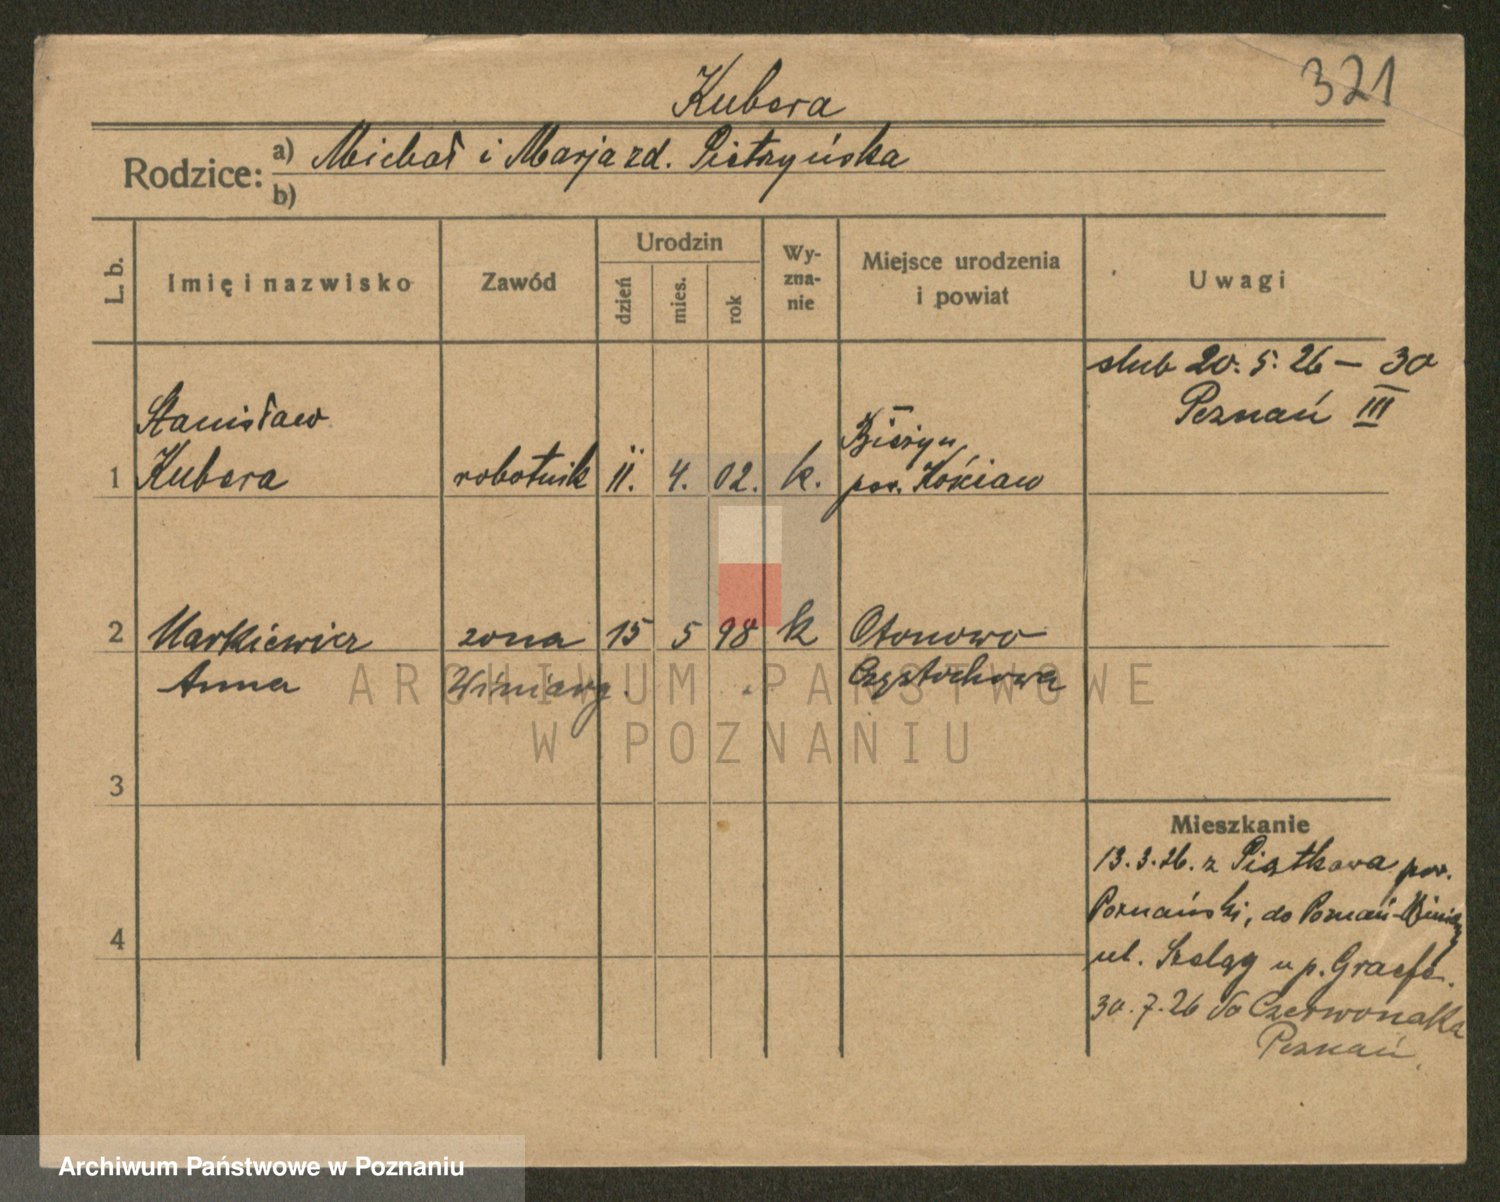 321
Kubera
Rodzice:
a) Michał i Marja zd. Pietrzyńska
b)
L. b.
Imię i nazwisko
Zawód
Urodzin
dzień
mies.
rok
Wy-
zna-
nie
Miejsce urodzenia
i powiat
Uwagi
ślub 20. 5. 26 — 30
Poznań III
Stanisław
1 Kubera robotnik 11. 4. 02. k.
pow. Kościan
2 Markiewicz żona 15 5 98 k Otonowo
Anna Częstochowa
3
4
Mieszkanie
13. 3. 26. z Piątkowa pow.
Poznański, do Poznań-
ul. Szeląg u p. Graefe.
30. 7. 26 do Czerwonaka
Poznań.
ARCHIWUM PAŃSTWOWE
W POZNANIU
Archiwum Państwowe w Poznaniu